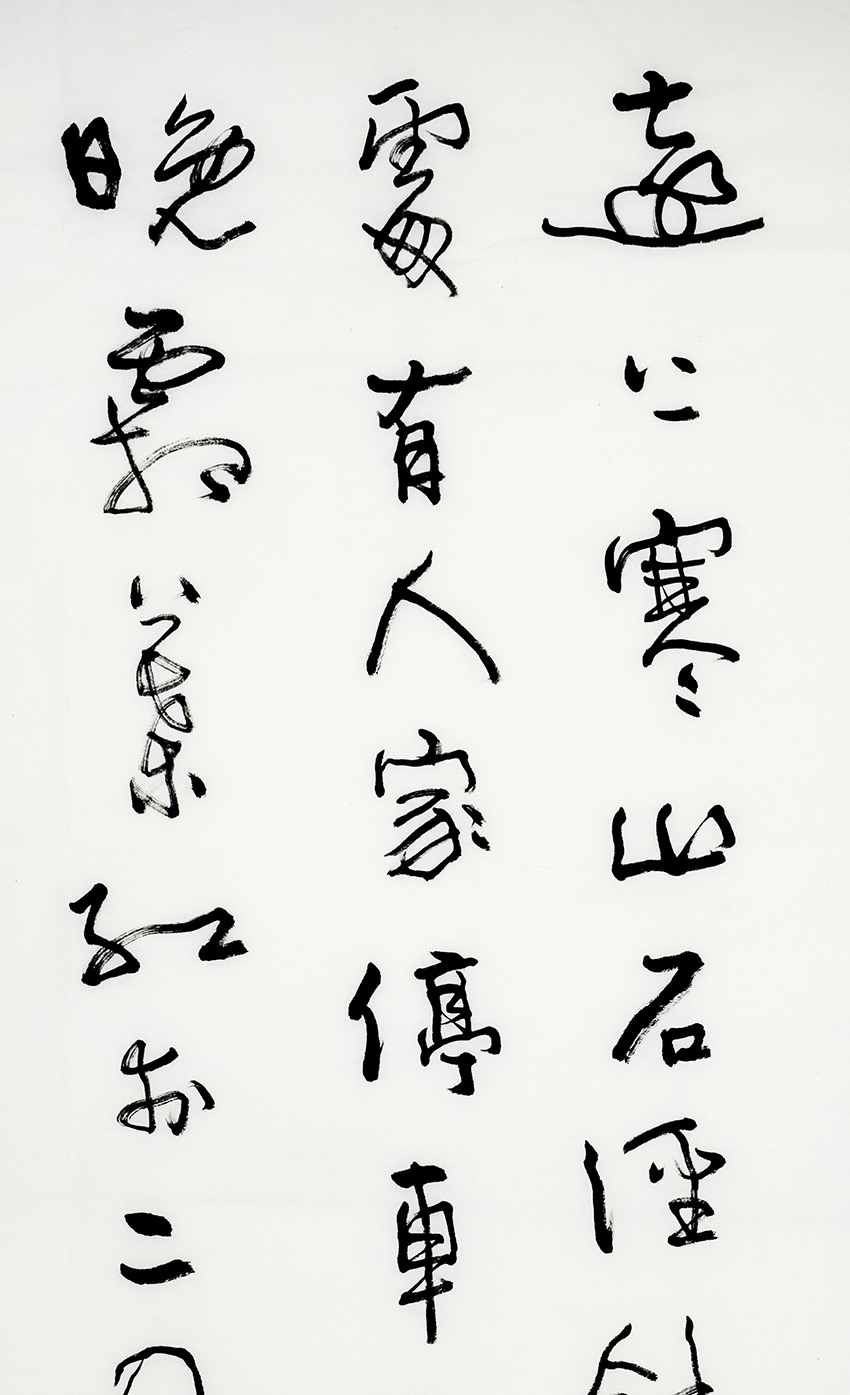 遠上寒山石徑
處有人家停車
晚霜葉紅於二